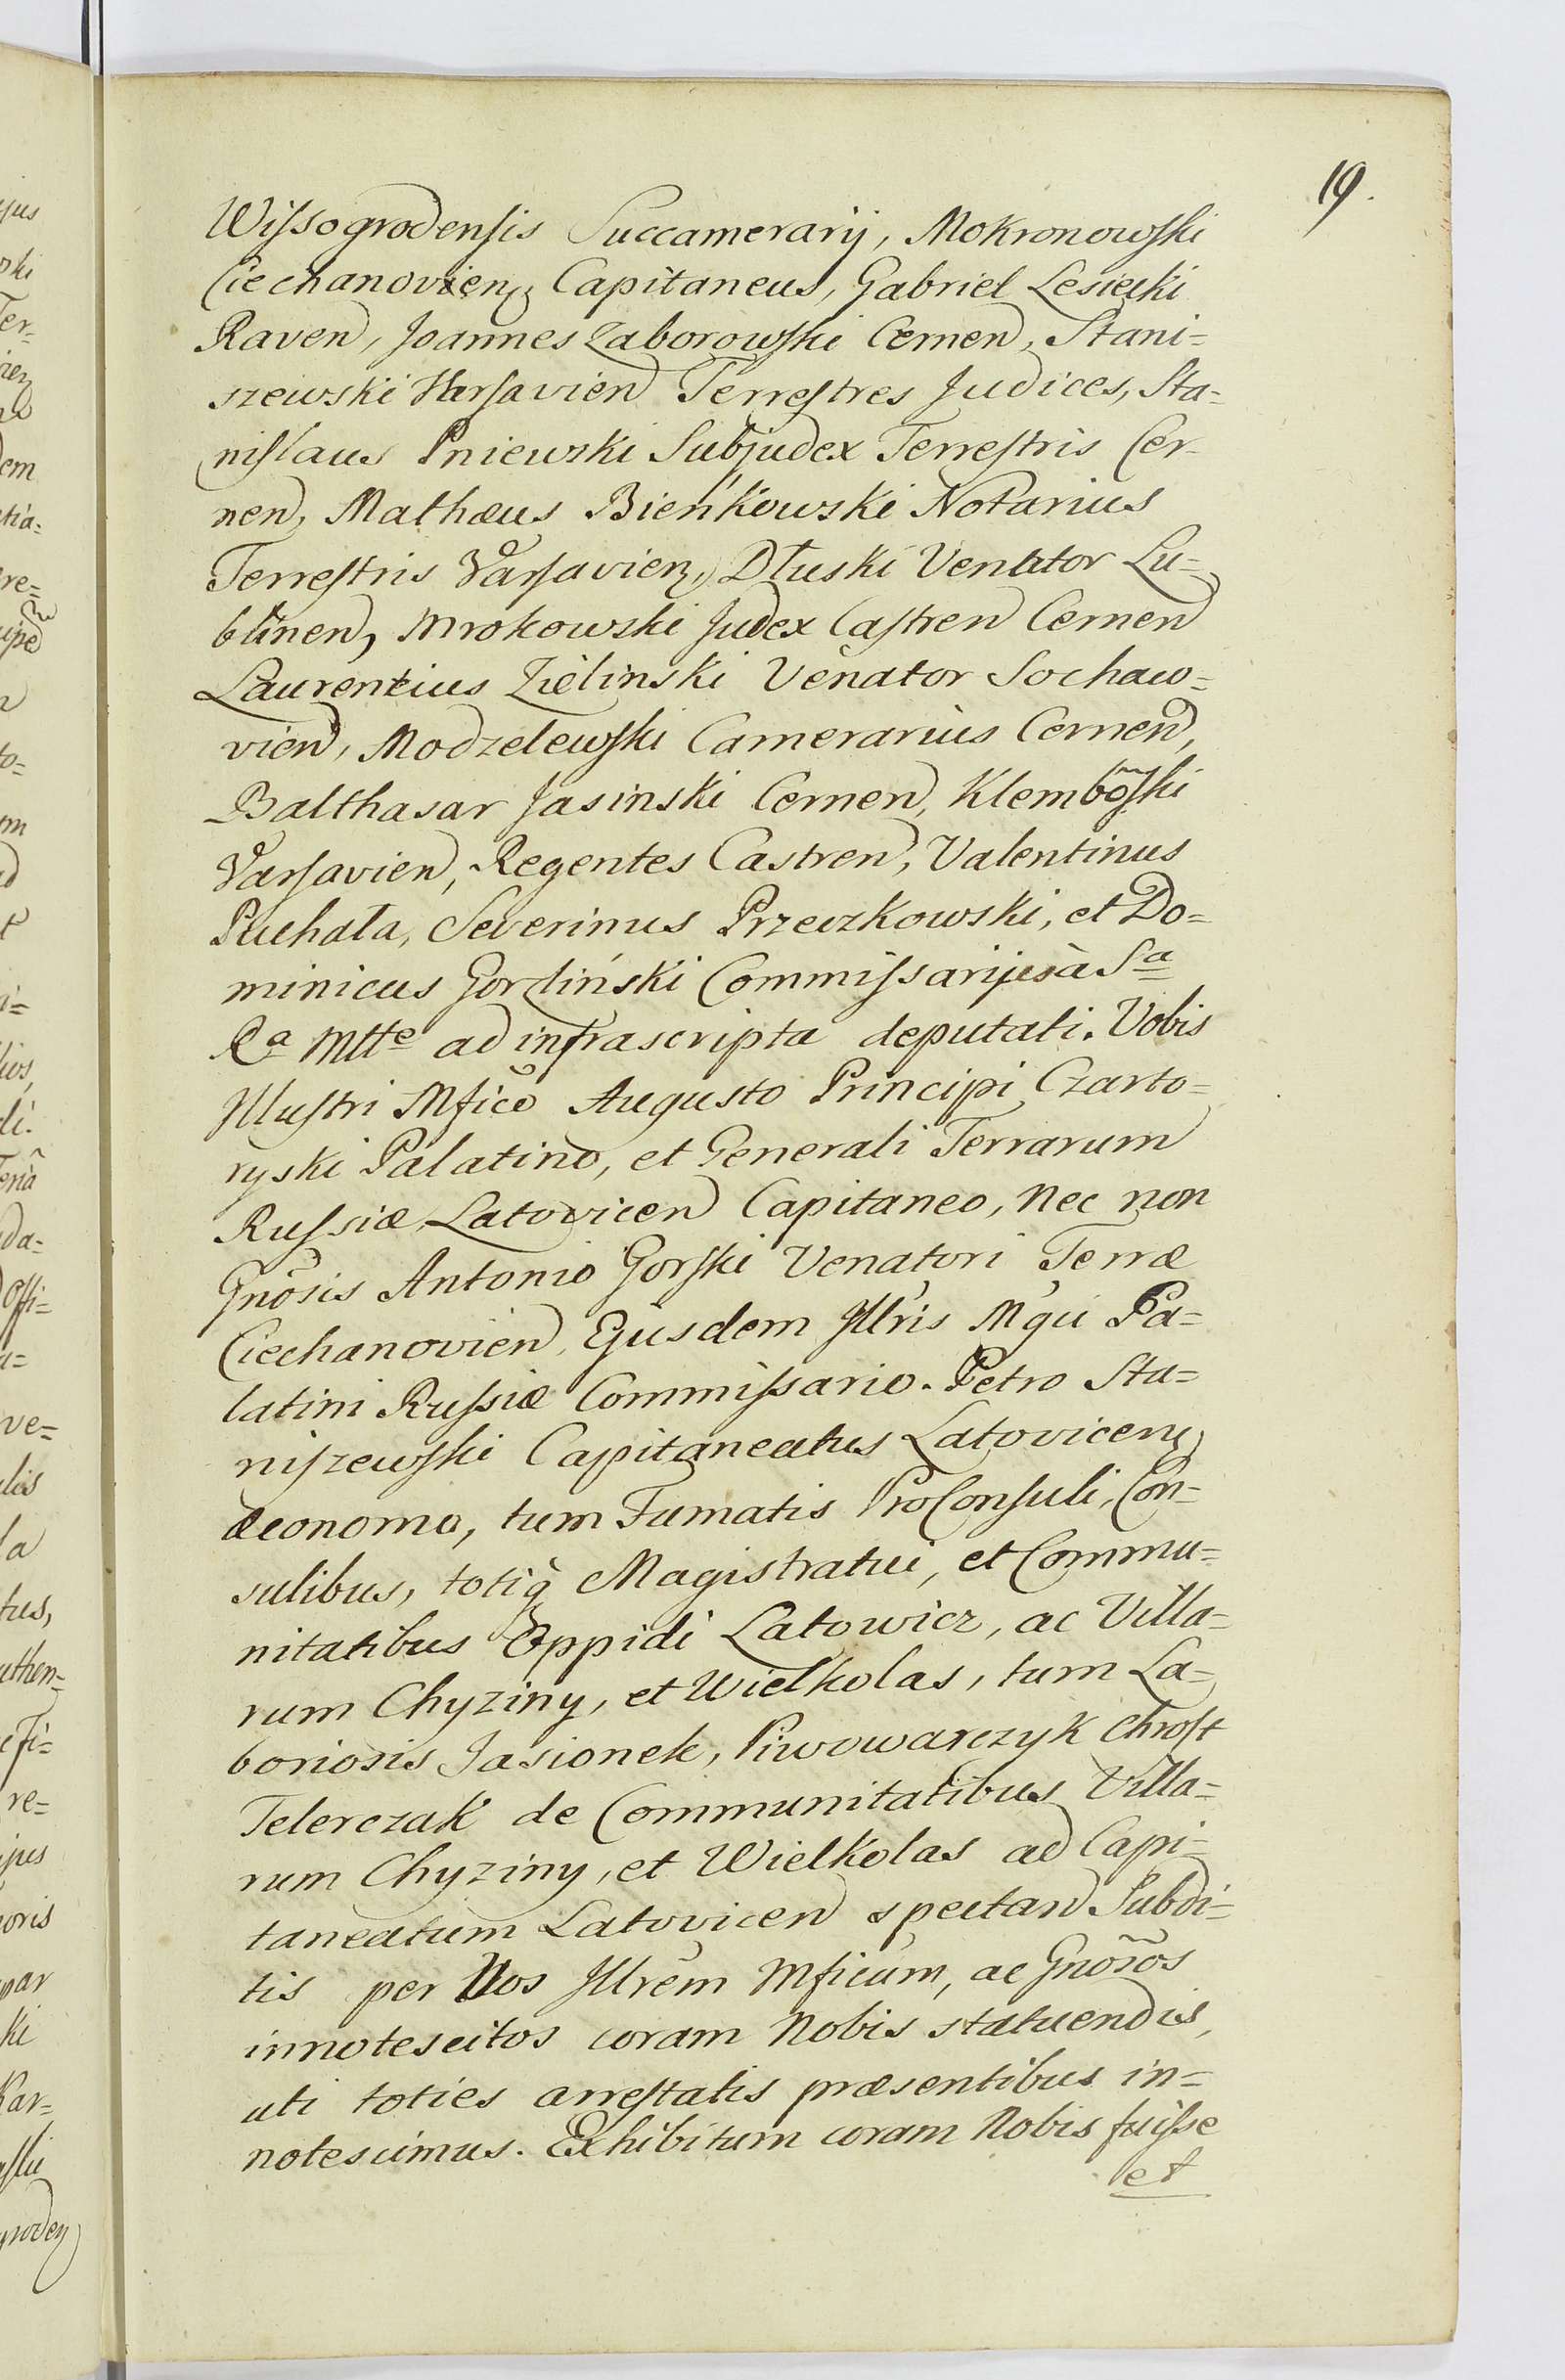 19.
Wissogrodensis Succamerarij, Mokronowski
Ciechanovien, Capitaneus, Gabriel Lesiecki
Raven, Joannes Zaborowski Cernen, Stani=
szewski Varsavien Terrestres Judices, Sta=
nislaus Pniewski Subjudex Terrestris Cer-
nen, Mathæus Bieńkowski Notarius
Terrestris Varsavien, Dłuski Venator Lu=
blinen, Mrokowski Judex Castren Cernen
Laurentius Zielinski Venator Sochaw=
vien, Modzelewski Camerarius Cernen,
Balthasar Jasinski Cernen, Klembõski
Varsavien, Regentes Castren, Valentinus
Puchała, Severinus Przeczkowski, et Do=
minicus Gordiński Commissarijs à Sa
Ra Mtte ad infrascripta deputati. Vobis
Illustri Mfico Augusto Principi Czarto=
ryski Palatino, et Generali Terrarum
Russiæ Latovicen Capitaneo, nec non
Gnõsis Antonio Gorski Venatori Terræ
Ciechanovien, Ejusdem Illris Mgci Pa=
latini Russiæ Commissario. Petro Sta=
niszewski Capitaneatus Latovicen,
Æconomo, tum Famatis ProConsuli, Con=
sulibus, totiq Magistratui, et Commu=
nitatibus Oppidi Latowicz, ac Villa=
rum Chyziny, et Wielkolas, tum La=
boriosis Jasionek, Piwowarczyk Chrost
Telerczak de Communitatibus Villa=
rum Chyziny, et Wielkolas ad Capi=
taneatum Latovicen spectan Subdi=
tis per Vos Illrem Mficum, ac Gnõsos
innotescitos coram Nobis statuendis,
uti toties arrestatis præsentibus in=
notescimus. Exhibitum coram Nobis fuisse
et